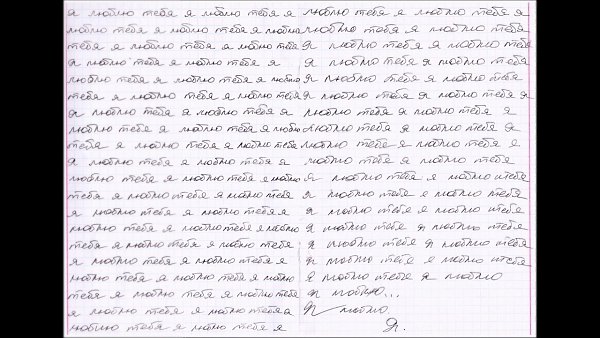 я люблю тебя я люблю тебя я
люблю тебя я люблю тебя я люблю
тебя я люблю тебя я люблю тебя
я люблю тебя я люблю тебя я
люблю тебя я люблю тебя я люблю
тебя я люблю тебя я люблю тебя
я люблю тебя я люблю тебя я
люблю тебя я люблю тебя я люблю
тебя я люблю тебя я люблю тебя
я люблю тебя я люблю тебя я
люблю тебя я люблю тебя я люблю
тебя я люблю тебя я люблю тебя
я люблю тебя я люблю тебя я
люблю тебя я люблю тебя я люблю
тебя я люблю тебя я люблю тебя
я люблю тебя я люблю тебя я
люблю тебя я люблю тебя я люблю
тебя я люблю тебя я люблю тебя
я люблю тебя я люблю тебя я
люблю тебя я люблю тебя я
люблю тебя я люблю тебя я
люблю тебя я люблю тебя
Я люблю тебя я люблю тебя
я люблю тебя я люблю тебя
я люблю тебя я люблю тебя
я люблю тебя я люблю тебя я
люблю тебя я люблю тебя я
люблю тебя я люблю тебя я
люблю тебя я люблю тебя я
люблю тебя я люблю тебя
я люблю тебя я люблю тебя
я люблю тебя я люблю тебя
я люблю тебя я люблю тебя
я люблю тебя я люблю тебя
я люблю тебя я люблю тебя
я люблю тебя я люблю тебя
я люблю тебя я люблю
я люблю...
я люблю
Я.